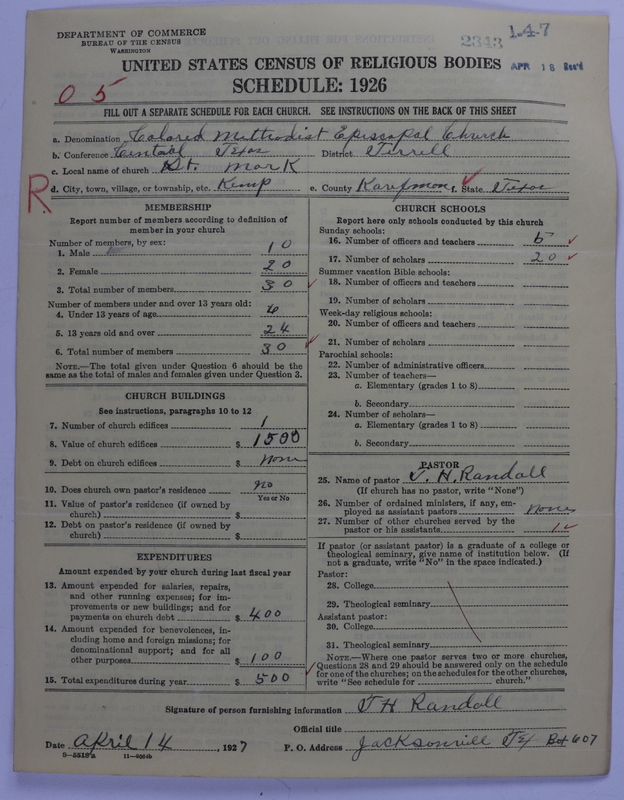 DEPARTMENT OF COMMERCE
BUREAU OF THE CENSUS
WASHINGTON
2343 1-47
UNITED STATES CENSUS OF RELIGIOUS BODIES APR 18 Rec'd
SCHEDULE: 1926
05
FILL OUT A SEPARATE SCHEDULE FOR EACH CHURCH. SEE INSTRUCTIONS ON THE BACK OF THIS SHEET
a. Denomination Colored Methodist Episcopal Church
b. Conference Central Texas District Terrell
c. Local name of church St. Mark
R. d. City, town, village, or township, etc. Kemp e. County Kaufmon f. State Texas
MEMBERSHIP
Report number of members according to definition of
member in your church
Number of members, by sex:
1. Male 10
2. Female 20
3. Total number of members 30
Number of members under and over 13 years old:
4. Under 13 years of age 6
5. 13 years old and over 24
6. Total number of members 30
NOTE.—The total given under Question 6 should be the
same as the total of males and females given under Question 3.
CHURCH BUILDINGS
See instructions, paragraphs 10 to 12
7. Number of church edifices 1
8. Value of church edifices $ 1500
9. Debt on church edifices $ None
10. Does church own pastor's residence No
Yes or No
11. Value of pastor's residence (if owned by
church) $
12. Debt on pastor's residence (if owned by
church) $
EXPENDITURES
Amount expended by your church during last fiscal year
13. Amount expended for salaries, repairs,
and other running expenses; for im-
provements or new buildings; and for
payments on church debt $ 400
14. Amount expended for benevolences, in-
cluding home and foreign missions; for
denominational support; and for all
other purposes $ 100
15. Total expenditures during year $ 500
CHURCH SCHOOLS
Report here only schools conducted by this church
Sunday schools:
16. Number of officers and teachers 5
17. Number of scholars 20
Summer vacation Bible schools:
18. Number of officers and teachers
19. Number of scholars
Week-day religious schools:
20. Number of officers and teachers
21. Number of scholars
Parochial schools:
22. Number of administrative officers
23. Number of teachers—
a. Elementary (grades 1 to 8)
b. Secondary
24. Number of scholars—
a. Elementary (grades 1 to 8)
b. Secondary
PASTOR
25. Name of pastor J. H. Randall
(If church has no pastor, write "None")
26. Number of ordained ministers, if any, em-
ployed as assistant pastors None
27. Number of other churches served by the
pastor or his assistants
If pastor (or assistant pastor) is a graduate of a college or
theological seminary, give name of institution below. (If
not a graduate, write "No" in the space indicated.)
Pastor:
28. College
29. Theological seminary
Assistant pastor:
30. College
31. Theological seminary
NOTE.—Where one pastor serves two or more churches,
Questions 28 and 29 should be answered only on the schedule
for one of the churches; on the schedules for the other churches,
write "See schedule for church."
Signature of person furnishing information J H Randall
Official title
Date April 14, 1927 P. O. Address Jacksonvill Tex Box 607
11—9064b